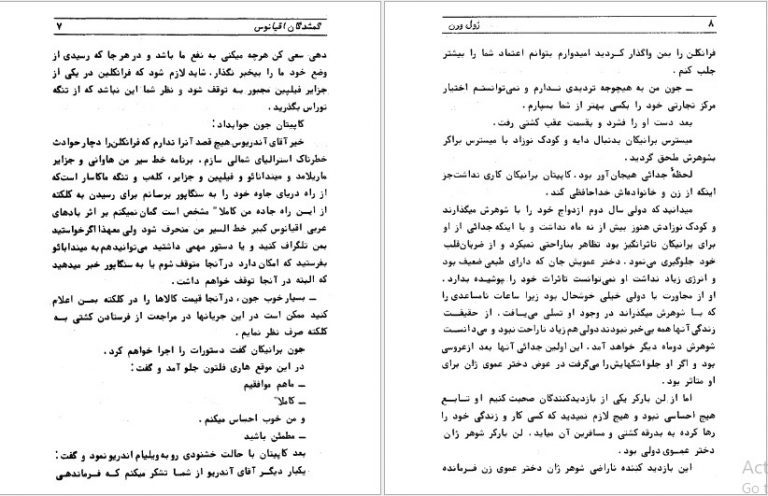 گمشدگان اقیانوس ۷
دهی سعی کن هرچه میکنی به نفع ما باشد و در هر جا که رسیدی از
وضع خود ما را بیخبر نگذار. شاید لازم شود که فرانکلین در یکی از
جزایر فیلیپین مجبور به توقف شود و نظر شما این نباشد که از تنگه
نوراس بگذرید.
کاپیتان جون جوابداد:
خیر آقای آندریوس هیچ قصد آنرا ندارم که فرانکلن را دچار حوادث
خطرناک استرالیای شمالی سازم. برنامه خط سیر من هاوانی و جزایر
ماریلامد و میندانائو و فیلیپین و جزایر، کلهب و تنگه ماکاسار است که
از راه دریای جاوه خود را به سنگاپور برسانم برای رسیدن به کلکته
از ایـن راه جاده من کاملا" مشخص است گمان نمیکنم بر اثر بادهای
غربی اقیانوس کبیر خط السیر من منحرف شود ولی معهذا اگر خواستید
بمن تلگراف کنید و یا دستور مهمی داشتید می‌توانیدهم به میندابائو
بفرستید که امکان دارد در آنجا متوقف شوم یا به سنگاپور خبر میدهید
که البته در آنجا توقف خواهم داشت.
ــ بسیار خوب جون، در آنجا قیمت کالاها را در کلکته بمـن اعلام
کنید ممکن است در این جریانها در مراجعت از فرستادن کشتی بـه
کلکته صرف نظر نمایم.
جون برانیکان گفت دستورات را اجرا خواهم کرد.
در این موقع هاری فلتون جلو آمد و گفت:
ــ ماهم موافقیم
ــ کاملا"
و من خوب احساس میکنم.
ــ مطمئن باشید
بعد کاپیتان با حالت خشنودی روبه ویلیام اندریو نمود و گفت:
یکبار دیگـر آقای آندریو از شمـا تشکر میکنم کـه فـرماندهـی
۸ ژول ورن
فرانکلن را بمن واگذار کـردید امیدوارم بتوانم اعتماد شما را بیشتر
جلب کنم.
ــ جون من به هیچوجه تردیدی نـدارم و نمی‌توانستـم اختیار
مرکز تجارتی خود را بکسی بهتر از شما بسپارم.
بعد دست او را فشرد و بقسمت عقب کشتی رفت.
میسترس برانیکان بدنبال دایه و کودک نوزاد با میسترس براکر
بشوهرش ملحق گردید.
لحظهٔ جدائی هیجان‌آور بود. کاپیتان برانیکان کاری نداشت جز
اینکه از زن و خانواده‌اش خداحافظی کند.
میدانید که دولی سال دوم ازدواج خود را با شوهرش میگذارند
و کودک نوزادش هنوز بیش از نه ماه نداشت و با اینکه جدائی از او
برای برانیکان تاثرانگیز بود تظاهر بناراحتی نمیکرد و از ضربان قلب
خود جلوگیری می‌نمود. دختر عمویش جان که دارای طبعی ضعیف بود
و انرژی زیاد نداشت او نمی‌توانست تاثرات خود را پوشیده بدارد.
او از مجاورت با دولی خیلی خوشحال بود زیرا ساعات نامساعدی را
که با شوهرش میگذراند در وجود او تسلی می‌یافت. از حقیقـت
زندگی آنها همه بی‌خبر نبودند دولی هم زیاد ناراحت نبود و می‌دانست
شوهرش دوماه دیگر خواهد آمد. این اولین جدائی آنها بعد ازعروسی
بود و اگر او جلو اشکهایش را می‌گرفت در عوض دختر عموی ژان برای
او متاثر بود.
اما از لن بارکر یکی از بازدیدکنندگان صحبت کنیم او تـابـع
هیچ احساسی نبود و هیچ لازم نمیدید که کسی کار و زندگی خود را
رها کرده به بدرقه کشتی و مسافرین آن میاید. لن بارکر شوهر ژان
دختر عمـوی دولی بود.
این بازدید کننده ناراضی شوهر ژان دختر عموی زن فرمانده